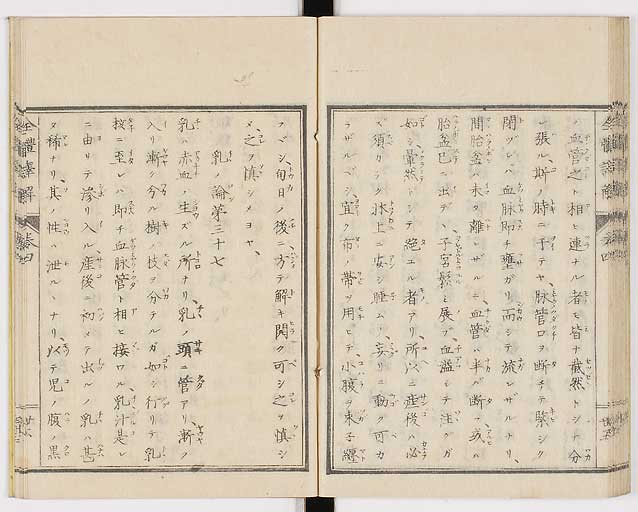 ハ血管之ト相ヒ連ナル者ヒ皆ナ截然トシテ分
レ張ル、斯ノ時ニ于テヤ、脉管口ヲ断チテ緊シク
閉ヅレバ血脉即チ壅ガリ而シテ流レザルナリ、
間胎盆ハ未タ離レザルニ血管ハ半バ断ヘ或ハ
胎盆已ニ出デヽ子宮鬆ト展ブ血溢レテ注グガ
如シ暈然トシテ絶エル者アリ、所以ニ産後ハ必
ズ須カラク牀上ニ安シ睡ムベシ妄リニ動ク可カ
ラザルベシ、宜ク布帯ヲ用ヒテ小腹ヲ束子纏
フベシ、旬日ノ後ニ方テ解キ開ク可シ之ヲ慎シ
メ之ヲ慎シメヨヤ、
乳ノ論第三十七
乳ハ赤血ノ生ズル所ナリ、乳ノ頭ニ管アリ、漸ク
入リ漸ク分ル樹ノ枝ヲ分テルガ如シ行リテ乳
核ニ至レバ即チ血脉管ト相ヒ接ワル、乳汁是レ
ニ由リテ滲リ入ル産後ニ初メテ出ルノ乳ハ甚
タ稀ナリ、其ノ性ハ泄ルヽナリ、以テ児ノ腹ノ黒
全體譯解
巻四